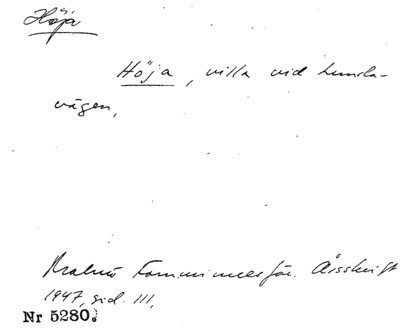 Höja
Höja, villa vid Lunda-
vägen,
Malmö Fornminnesför. Årsskrift
1947, sid. 111.
Nr 5280.